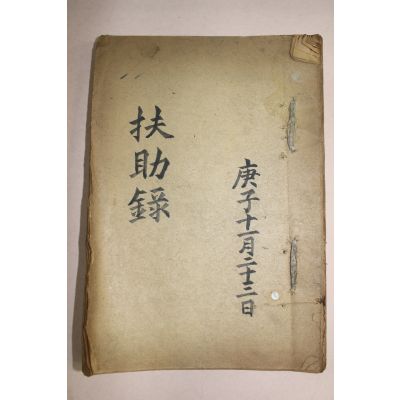 庚子十一月二十二日
扶助錄